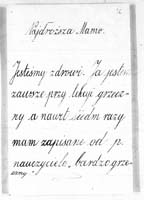 Najdroższa Mamo.
Jesteśmy zdrowi. Ja jestem
zawsze przy lekcji grzecz-
ny a nawet siedm razy
mam zapisane od p.
nauczyciela „bardzo grze-
czny".